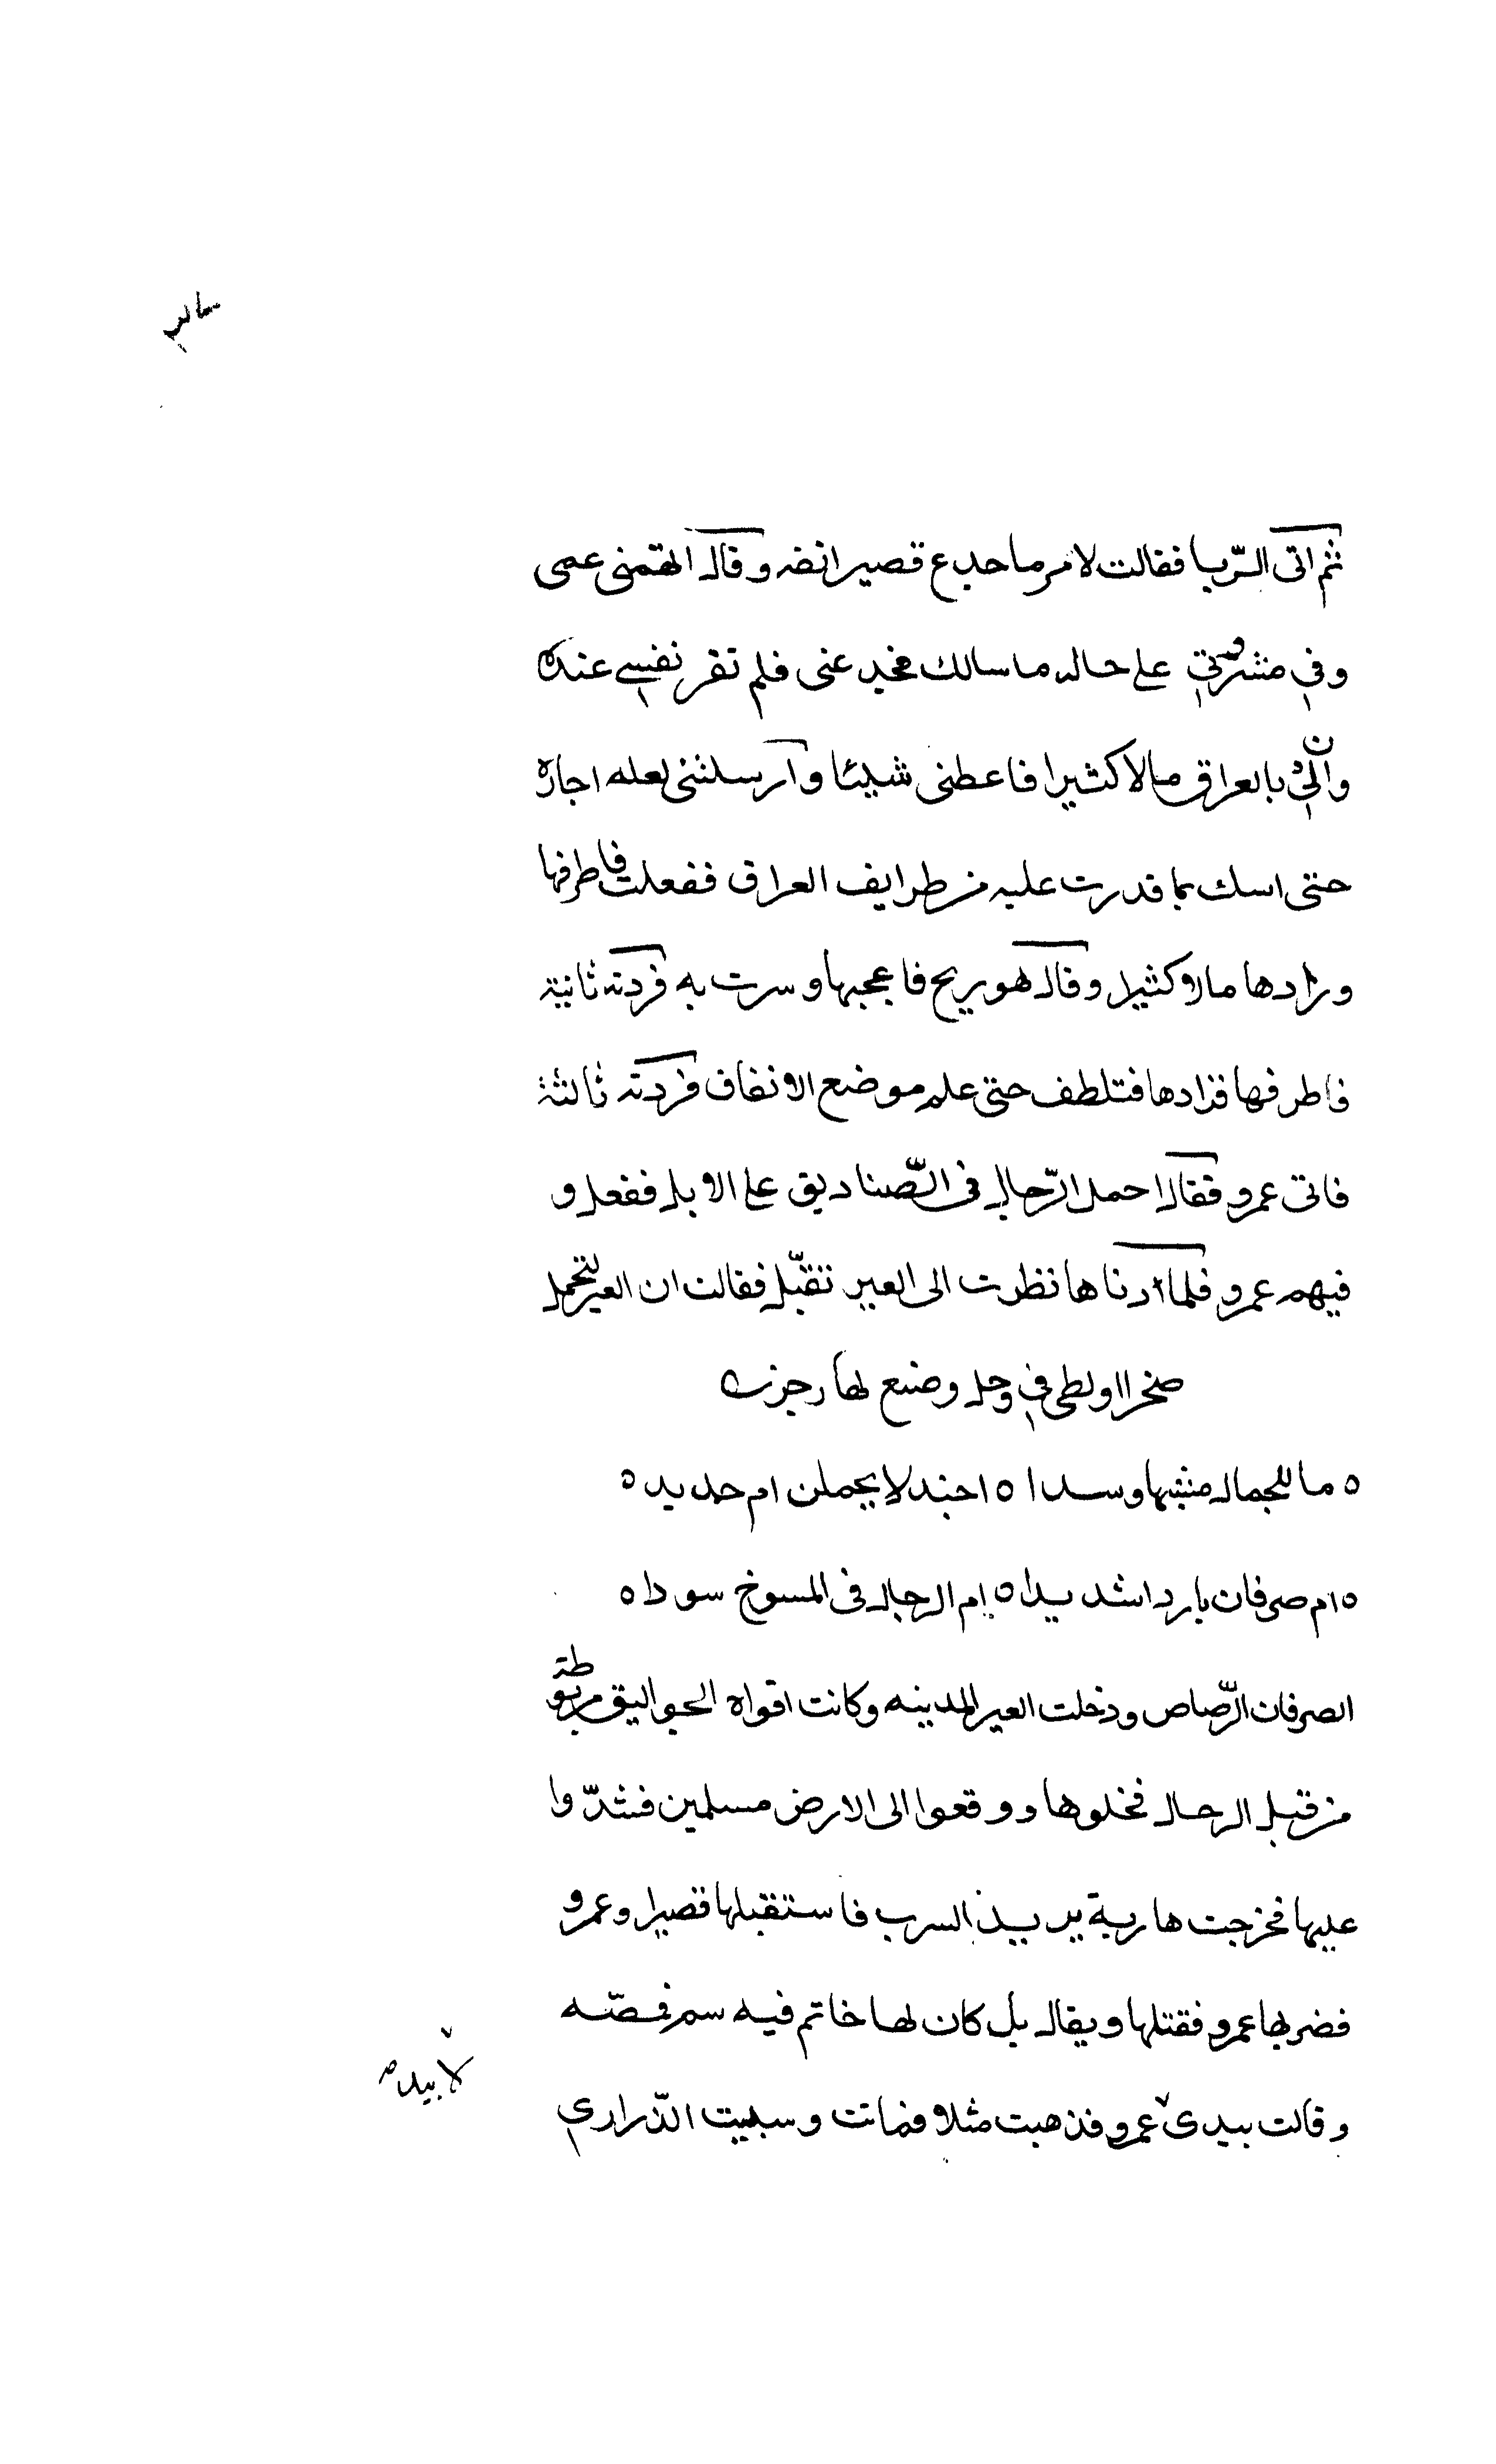 ثم اتى الزبا فقالت لامر ما جدع قصير انفه وقال اتهمنى عمى
وفي مشورتي على خاله ما سالك مخبر عنى فلم تقر نفسي عنده
وان لي بالعراق مالا كثيرا فاعطنى شيئا وارسلننى لعله اجازه
حتى اسك بما قدرت عليه من طرايف العراق ففعلت فاطرفها
وزادها مالا كثيرا وقال هو ربح فاعجبها وسرت به فردته ثانية
فاطرفها فزادها فتلطف حتى علم موضع الانفاق فردته ثالثة
فاتى عمرو فقال احمل الرّجال فى الصّناديق على الابل ففعل و
فيهم عمرو فلما دناها نظرت الى العير تقبّل فقالت ان العير لتحمل
صخرا او لطى في وحل وضع لها رجزت
ه ما للجمال مشيها وسدا ه اجندلا يحملن ام حديد ه
ه ام صرفان باردا شديدا ه ام الرجال فى المسوخ سودا ه
الصرفان الرّصاص ودخلت العير المدينه وكانت افواه الجواليق مربوطة
من قبل الرحال فخلوها ووقعوا الى الارض مسلمين فشدّوا
عليها فخرجت هاربة يريد السرب فاستقبلها قصيرا وعمرو
فضربها عمرو فقتلها ويقال بل كان لها خاتم فيه سم فمصّه
وقالت بيدى عمرو فذهبت مثلا فماتت وسبيت الذّرارى
لا بيد